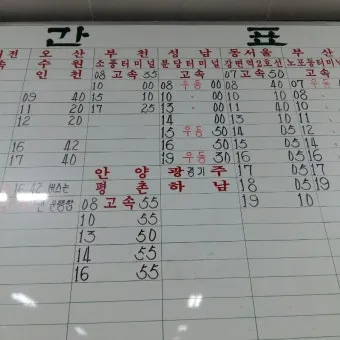 간 표
전 오산 부천 성남 동서울 부산
속 수원 소풍터미널 분당터미널 강변역2호선 노포동터미널
인천 08 고속 55 고속 07 고속 50 고속
10 00 08 우등 00 40 07 우등
09 40 15 10 10 00 10 10 08
11 20 17 25 11 00 11 40 10
12 20 14 00 10
15 우등 50 14 05 12
16 42 16 50 15 05 14
17 40 19 우등 30 16 05 16
안양 광경기주 17 05 17
16 42 버스는 평촌 하남 18 05 19
운행함 08 고속 55 19 10
10 55
13 50
14 55
16 55